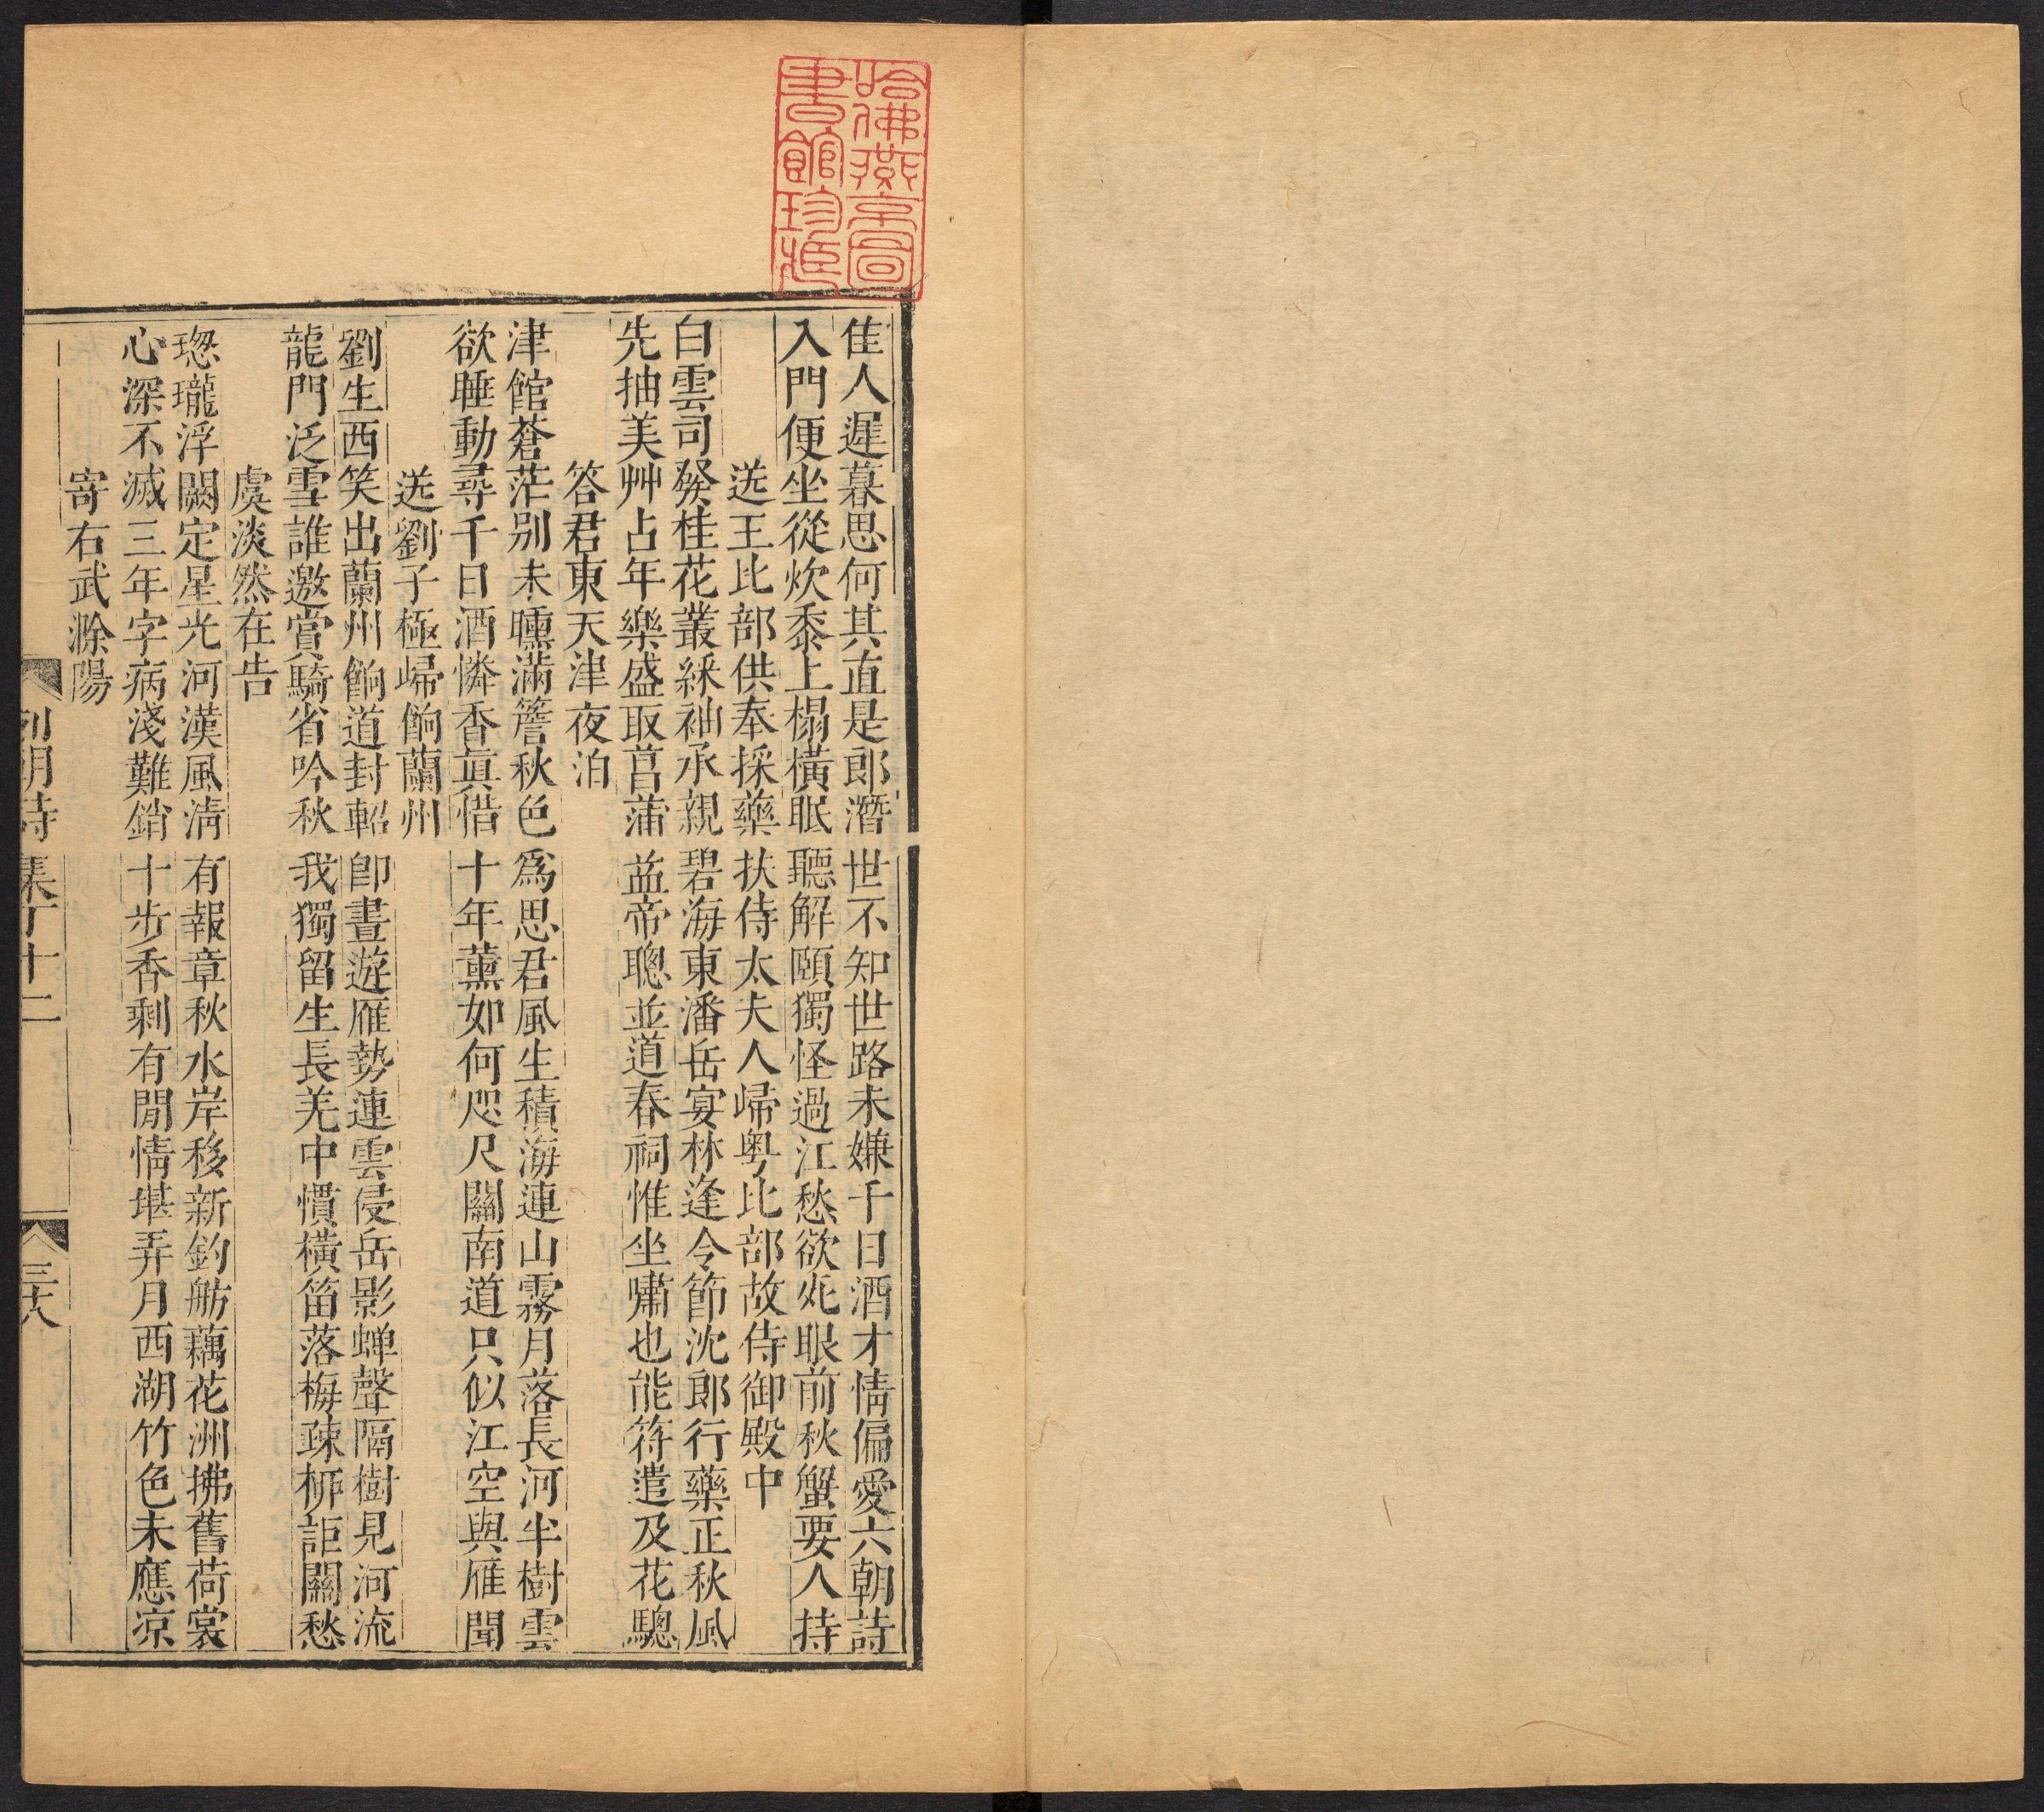 哈佛燕京圖
書館珍藏
佳人遲暮思何其直是郎潛世不知世路未嫌千日酒才情偏愛六朝詩
入門便坐從炊黍上榻橫眠聽解頤獨怪過江愁欲死眼前秋蟹要人持
送王比部供奉採藥扶侍太夫人歸粤比部故侍御殿中
白雲司發桂花叢綵袖承親碧海東潘岳宴林逢令節沈郎行藥正秋風
先抽美艸占年樂盛取菖蒲益帝聰並道春祠惟坐嘯也能符遣及花驄
答君東天津夜泊
津館蒼茫别未曛滿簷秋色爲思君風生積海連山霧月落長河半樹雲
欲睡動尋千日酒憐香眞惜十年薰如何咫尺關南道只似江空與雁聞
送劉子極歸餉蘭州
劉生西笑出蘭州餉道封軺卽晝遊雁勢連雲侵岳影蟬聲隔樹見河流
龍門泛雪誰邀賞騎省吟秋我獨留生長羌中慣橫笛落梅疎栁詎關愁
虞淡然在告
璁瓏浮闕定星光河漢風淸有報章秋水岸移新釣舫藕花洲拂舊荷裳
心深不滅三年字病淺難銷十步香剩有閒情堪弄月西湖竹色未應凉
寄右武滁陽
列朝詩集丁十二
三十八